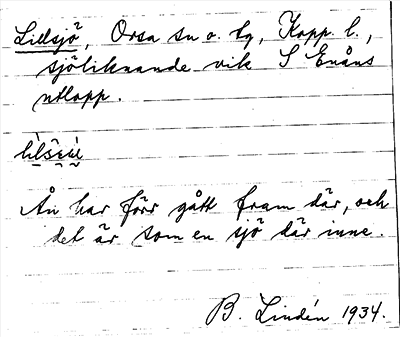 Lillsjö, Orsa sn o. tg, Kopp. l.,
sjöliknande vik S Enåns
utlopp.
Ån har förr gått fram där, och
det är som en sjö där inne.
B. Lindén 1934.